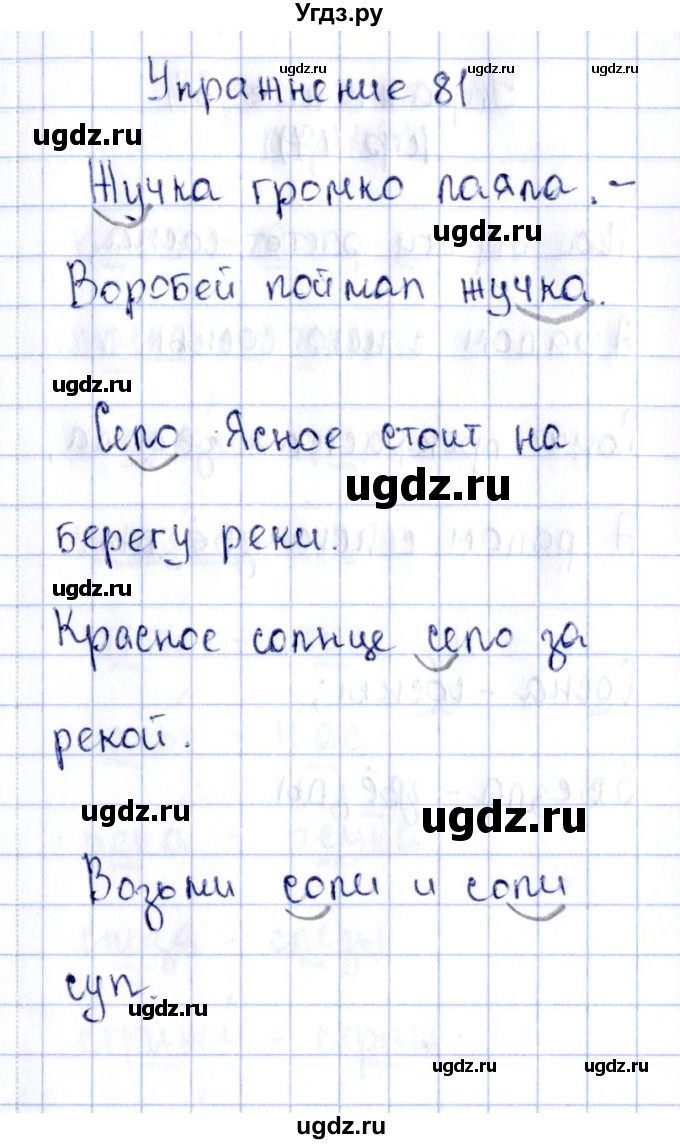 Угдз.ру
ugdz.ru ugdz.ru ugdz.ru
Упражнение 81
ugdz.ru
Жучка громко лаяла. –
ugdz.ru
Воробей поймал жучка.
ugdz.ru
Село Ясное стоит на
ugdz.ru
берегу реки.
ugdz.ru
Красное солнце село за
рекой.
ugdz.ru ugdz.ru
Возьми соли и соли
суп.
ugdz.ru
ugdz.ru ugdz.ru
ugdz.ru